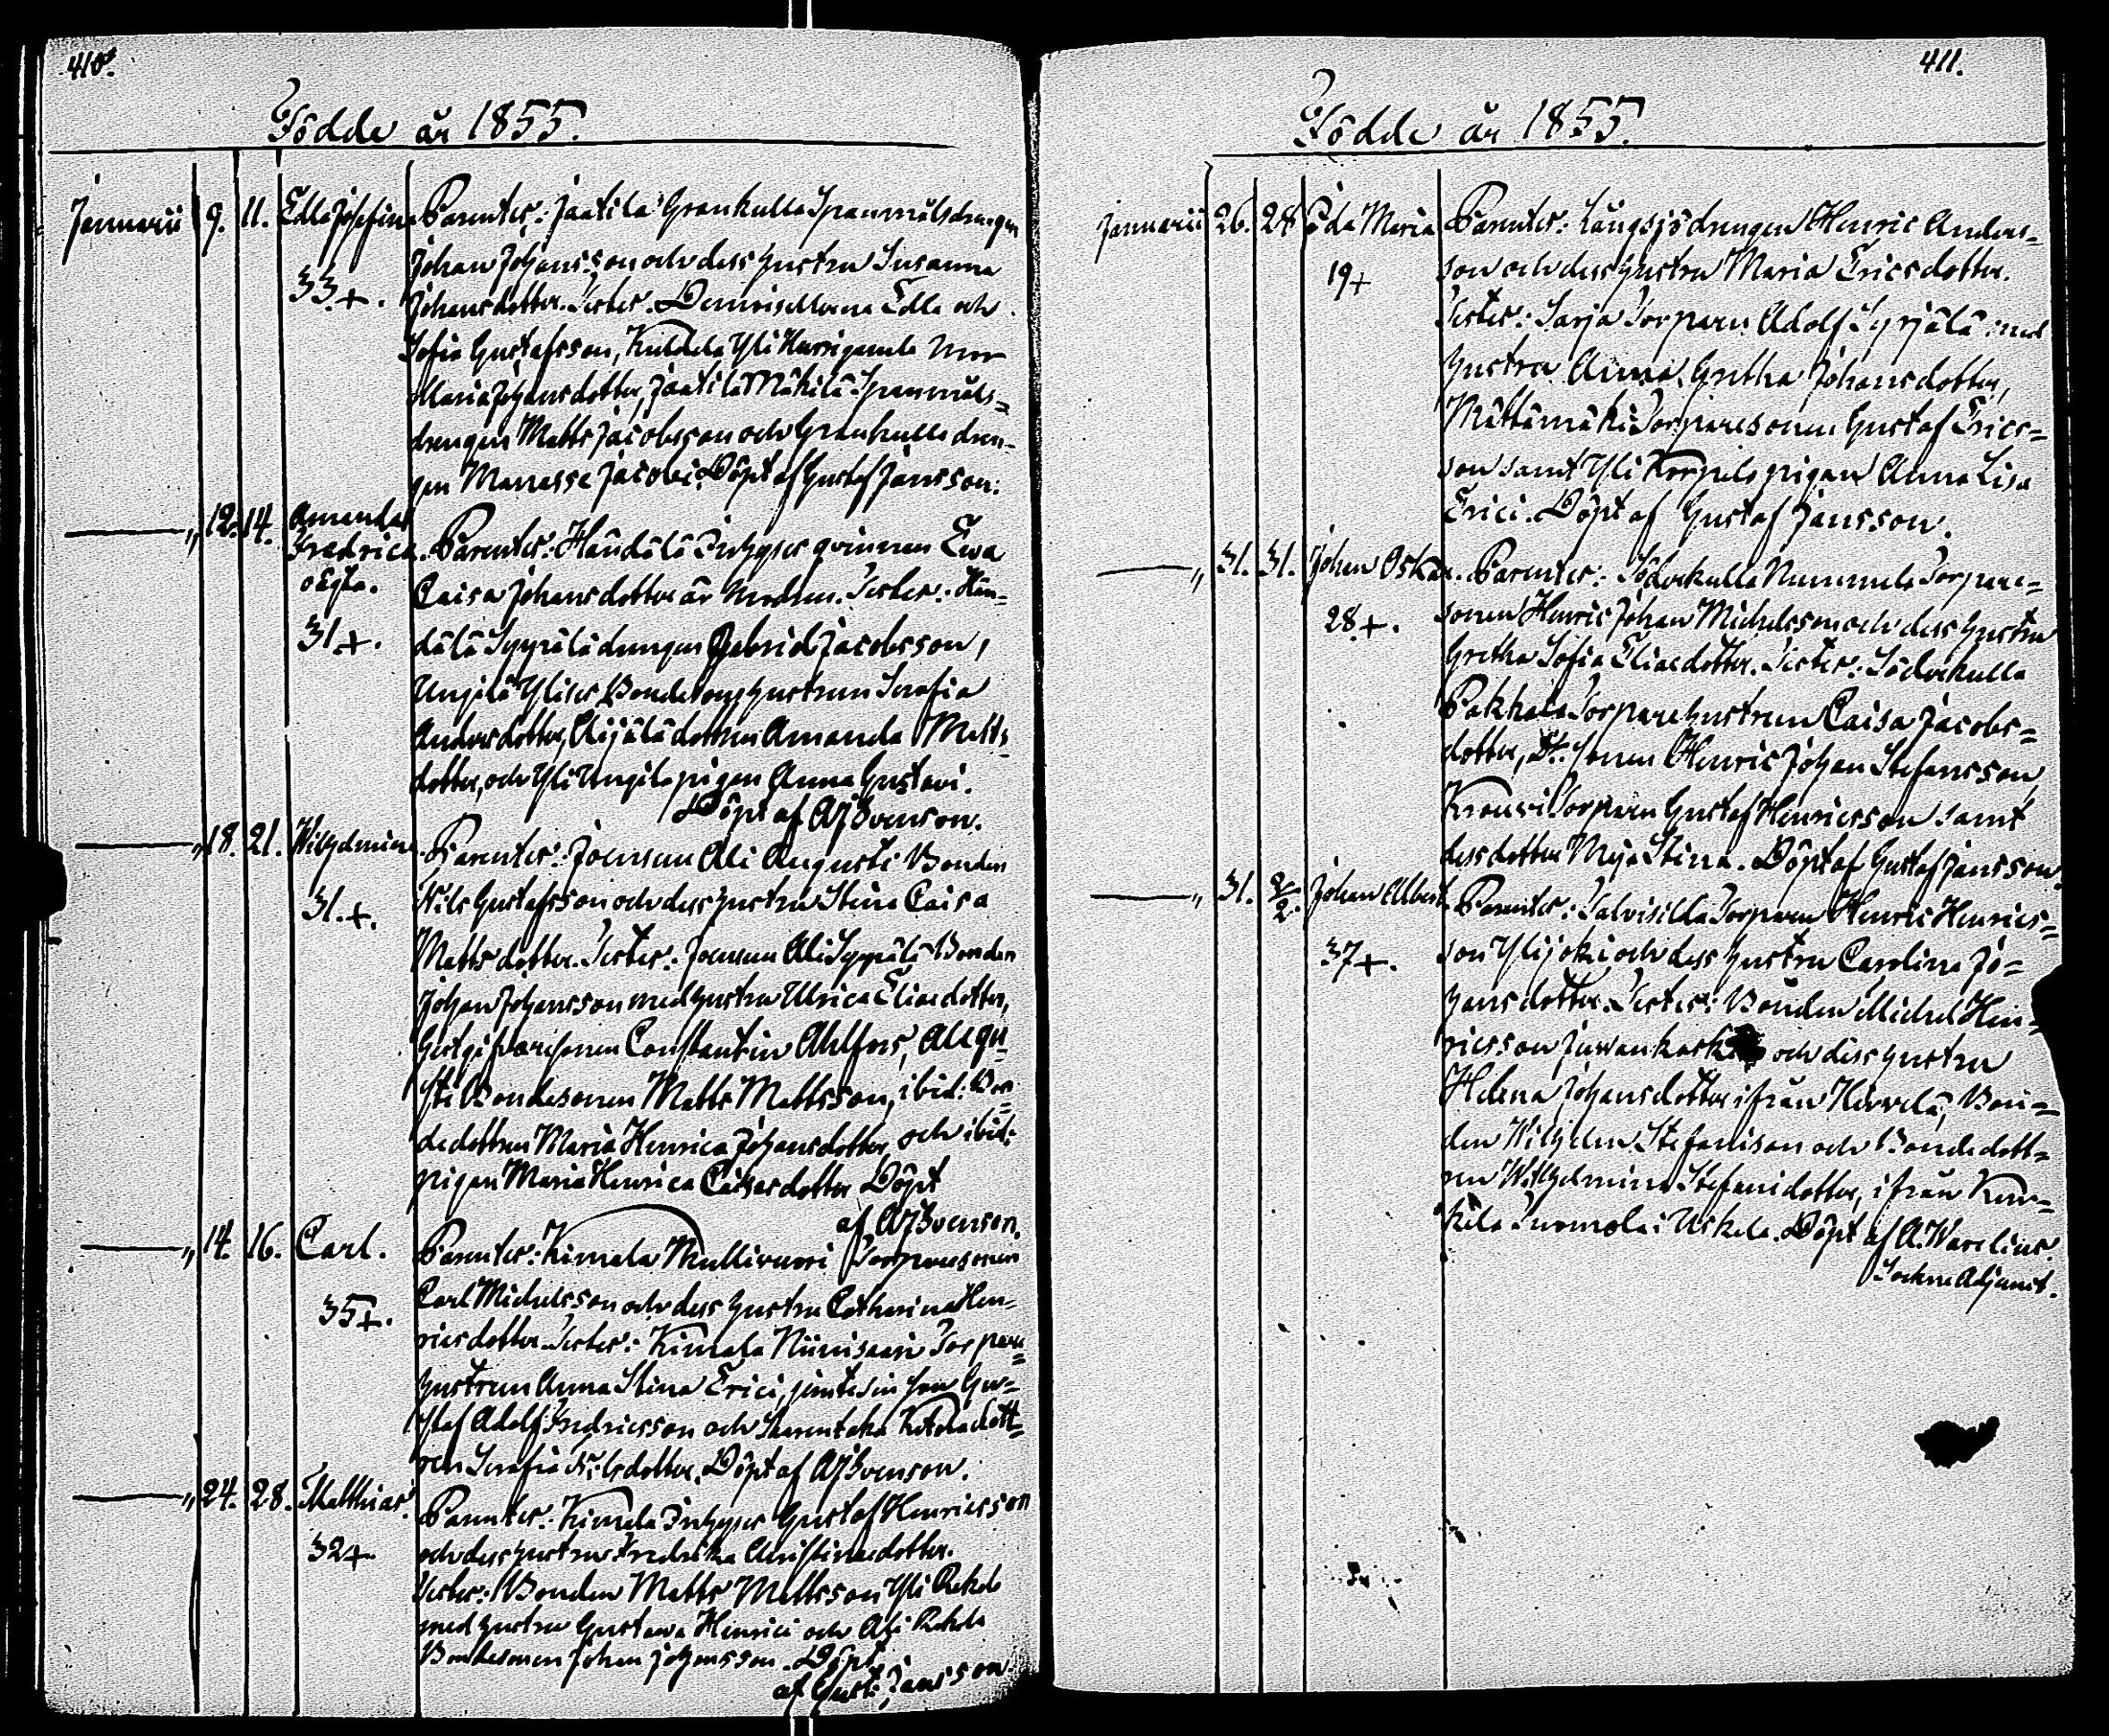 410.
Födde år 1855.
Januarii 9. 11. Edla Josefina Parenter: Jaatila Grankulla Spanmålsdrengen
Johan Johansson och dess hustru Susanna
33+. Johansdotter. Tester. Demoisellerna Edla och
Sofia Gustafsson, Mor
Maria Johansdotter, Jaatila Mäkilä Spanmåls=
drengen Matts Jacobsson och Grankulla dren-
gen Manasse Jacobi. Döpt af Gustaf Jansson.
—„ 12. 14. Amanda
Fredrica. Parenter: Händälä Inhyses qvinnan Ewa
oägta. Caisa Johansdotter är modren. Tester: Hän=
31.+. dälä Syyrälä drengen Gabriel Jacobsson,
Hustrun Serafia
Andersdotter, Äijälä dottren Amanda Matts
dotter, och Yli pigan Anna Gustavi.
Döpt af AJSvenson.
—„ 18. 21. Wilhelmina. Parenter: Joensuu Ali Augusti Bonden
Nils Gustafsson och dess hustru Stina Caisa
31.+. Mattsdotter. Tester: Joensuu Ali Syyrälä Bonden
Johan Johansson med hustru Ulrica Eliaedotter,
Constantin Ahlfors, Ali Gu=
sti Bondesonen Matts Mattsson, ibid: Bon=
dedottren Maria Henrica Johansdotter, och ibid:
pigan Maria Henrica Döpt
af AJSvenson.
—„ 14. 16. Carl. Parenter: Kimala Mullivuori Torparesonen
Carl Michelsson och dess hustru Catharina Hen=
35+. ricsdotter. Tester: Kimala Niinisaari Torpare
hustrun Anna Stina Erici, jemte sin son Gu=
staf Adolf Fredricsson och dott=
ren Serafia Nilsdotter. Döpt af AJSvenson.
—„ 24. 28. Matthias. Parenter: Kimala Inhyses Gustaf Henricsson
32+. och dess hustru Fredrika Christiansdotter.
Tester: Bonden Matts Mattsson Yli Rekola
med hustru Gustava Henrici och Ali Rekola
Bondesonen Johan Johansson. Döpt
af Gust: Jansson.
411.
Födde år 1855.
Januarii 26. 28 Maria Parenter: Långsjö drengen Henric Anders=
19+ son och dess hustru Maria Ericsdotter.
Tester: Sarja Torparen Adolf Syrjälä med
hustru Anna Gretha Johansdotter,
Mättämäki Torparesonen Gustaf Erics=
son samt Yli Korpela pigan Anna Lisa
Erici. Döpt af Gustaf Jansson.
—„ 31. 31. Johan Oskar. Parenter: Söderkulla Nummela Torpare=
28.+. sonen Henric Johan Michelsson och dess hustru
Gretha Sofia Eliaedotter. Tester: Söderkulla
Pakkala Torparehustrun Caisa Jacobs=
dotter, D:o sonen Henric Johan Stefansson,
Krouvi Torparen Gustaf Henricsson samt
dess dotter Maja Stina. Döpt af Gustaf Jansson.
—„ 31. 2/2. Johan Albert. Parenter: Talvisilla Torparen Henric Henrics=
37+. son Ylijoki och dess hustru Carolina Jo=
hansdotter. Tester: Bonden Michel Hen=
ricsson, och dess hustru
Helena Johansdotter ifrån Hirvelä, Bon=
den Wilhelm Stefanison och Bondedott=
ren Wilhelmina Stefanidotter, ifrån
Tuomola i Uskela. Döpt af A. Warelius.
Sockne Adjunct.